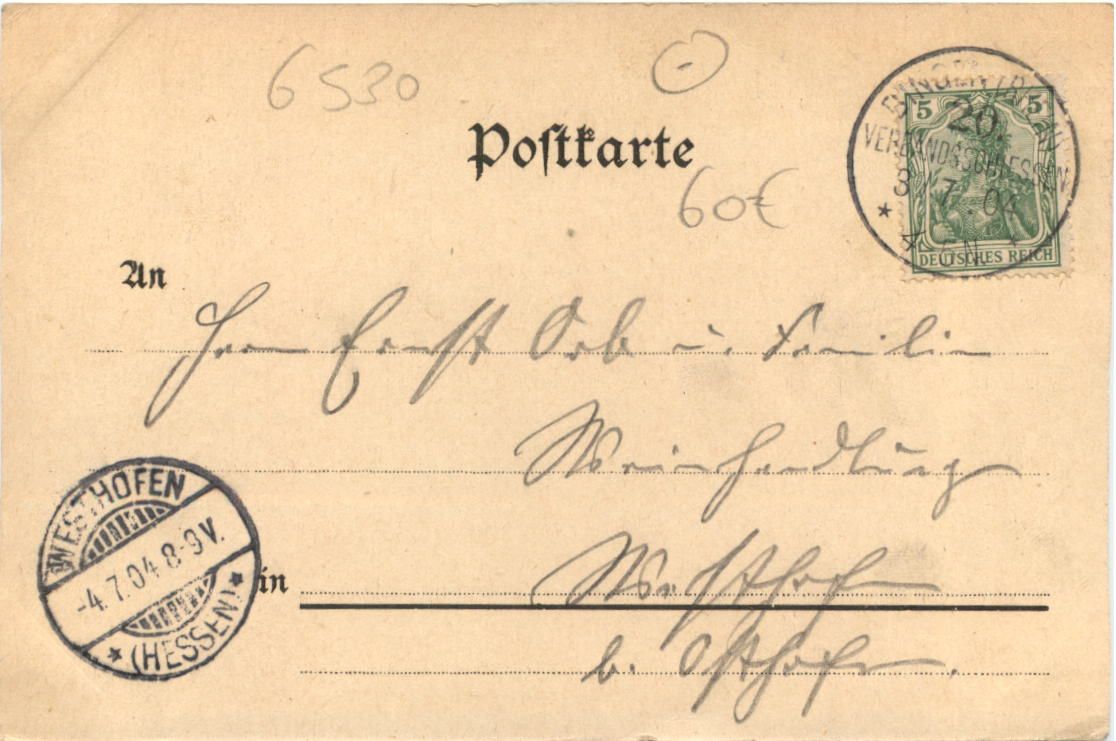 6530
Postkarte
60€
5 5
20.
VERBANDSSCHIESSEN
3 7.04
4-5 N.
DEUTSCHES REICH
An
Herrn Ernst Orb u. Familie
Weinhandlung
WESTHOFEN
-4.7.04 8-9V.
* (HESSEN) *
in
Westhofen
b. Osthofen.